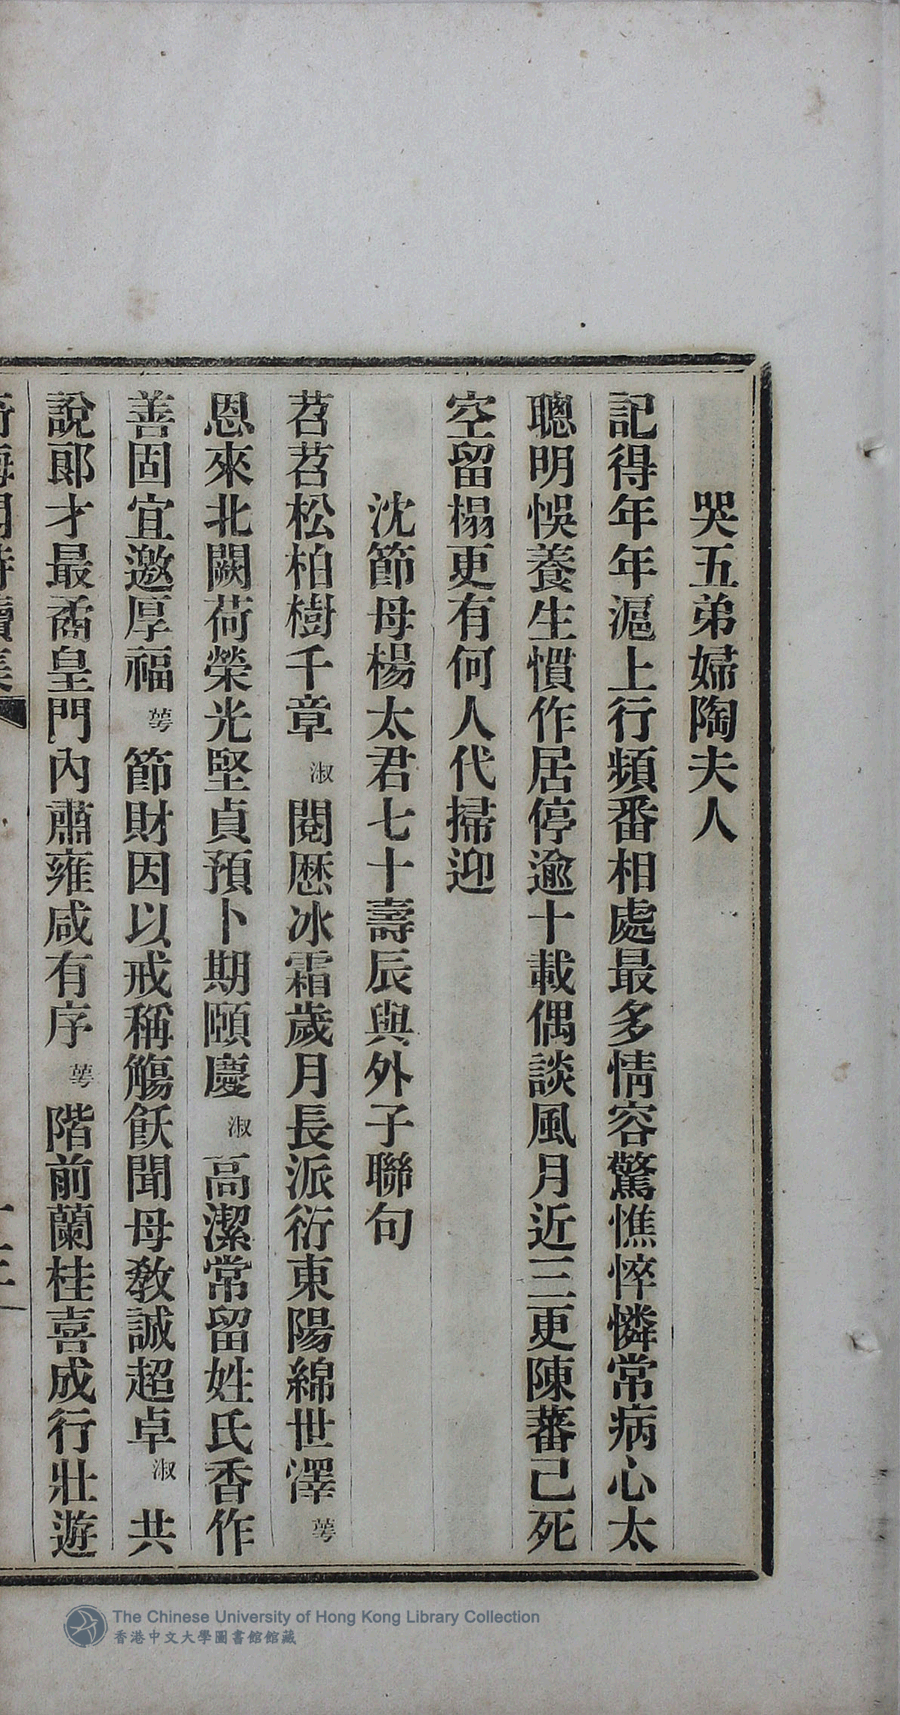 哭五弟婦陶夫人
記得年年滬上行頻番相處最多情容驚憔悴憐常病心太
聰明悞養生慣作居停逾十載偶談風月近三更陳蕃己死
空留榻更有何人代掃迎
沈節母楊太君七十壽辰與外子聯句
苕苕松柏樹千章淑閱厯冰霜歲月長派衍東陽綿世澤萼
恩來北闕荷榮光堅貞預卜期頤慶淑高潔常留姓氏香作
善固宜邀厚福萼節財因以戒稱觴飫聞母敎誠超卓淑共
說郎才最矞皇門內肅雍咸有序萼階前蘭桂喜成行壯遊
The Chinese University of Hong Kong Library Collection
香港中文大學圖書館館藏